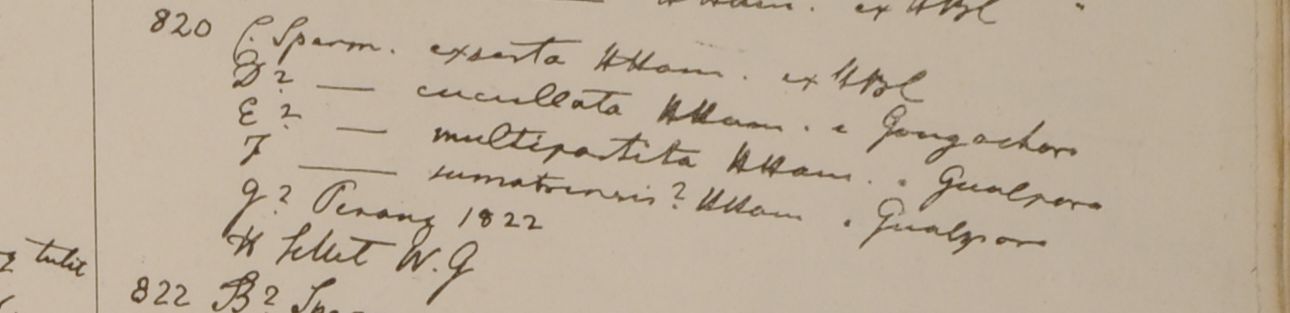 HHam. ex HBL "
820 C. Sperm. exserta HHam. ex HBL
D? — cucullata HHam. e Gongachora
E? — multipartita HHam. " Gualpara
F — sumatrensis? HHam " Gualpara
G? Penang 1822
H Sillet W.G
822 B?
tulit